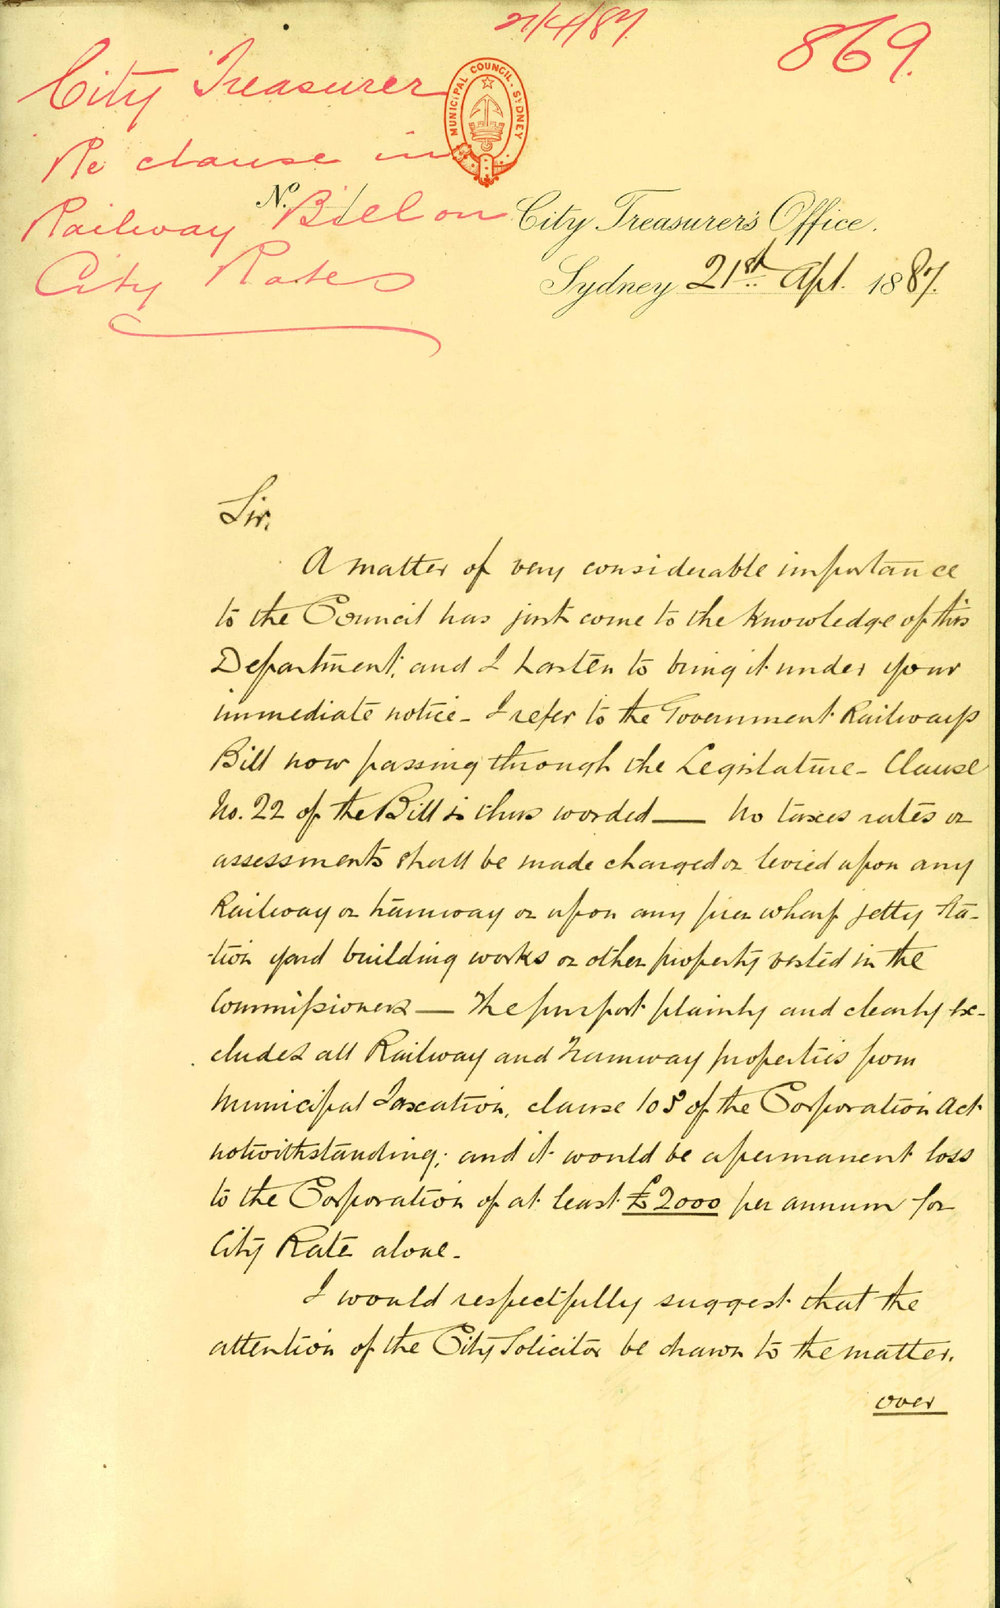 21/4/87.
869.
City Treasurer
Re clause in
Railway Bill on
City Rates
MUNICIPAL COUNCIL. SYDNEY
No.
City Treasurer's Office.
Sydney 21st Apl. 1887.
Sir,
A matter of very considerable importance
to the Council has just come to the knowledge of this
Department, and I hasten to bring it under your
immediate notice - I refer to the Government Railways
Bill now passing through the Legislature - Clause
No. 22 of the Bill is thus worded — No taxes rates or
assessments shall be made charged or levied upon any
Railway or tramway or upon any pier wharf jetty Sta-
-tion yard building works or other property vested in the
Commissioners — The purport plainly and clearly Ex-
cludes all Railway and Tramway properties from
Municipal Taxation, clause 105 of the Corporation Act
notwithstanding; and it would be a permanent loss
to the Corporation of at least £2000 per annum for
City Rate alone -
I would respectfully suggest that the
attention of the City Solicitor be drawn to the matter.
over